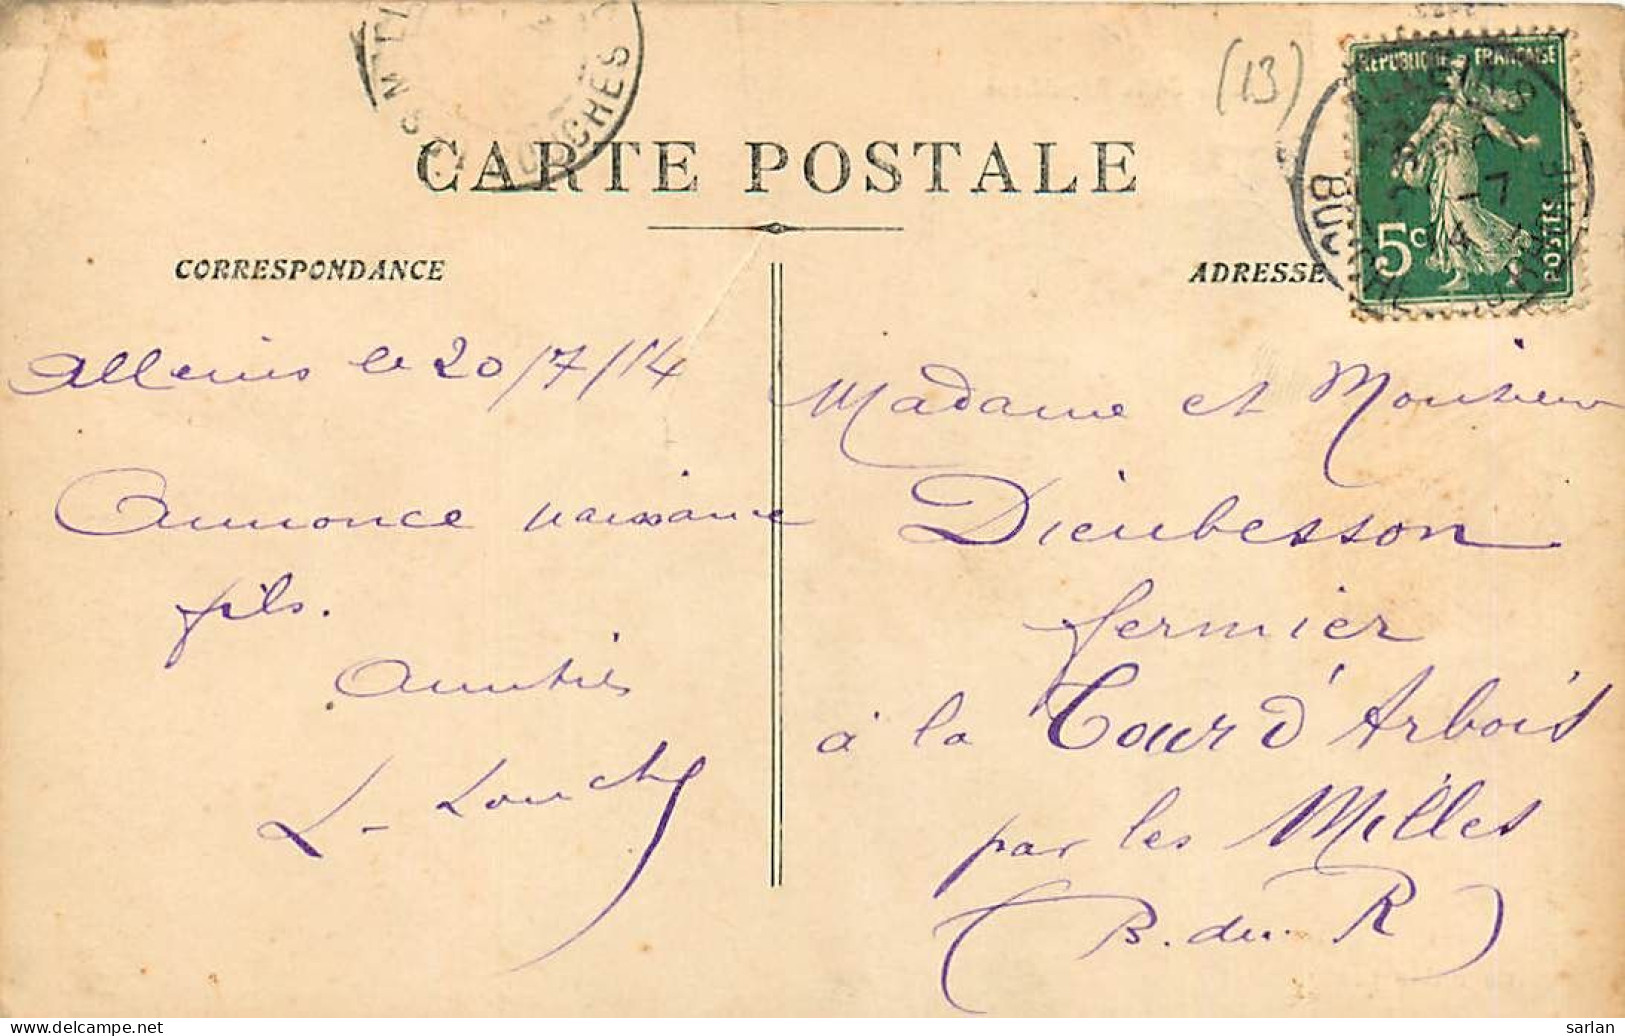 (13)
RÉPUBLIQUE FRANÇAISE
5c
POSTES
CARTE POSTALE
CORRESPONDANCE
ADRESSE
Alleins le 20/7/14
Annonce naissance
fils.
Amitiés
Madame et Monsieur
Dieubesson
fermier
à la Tour d'Arbois
par les Milles
(B. du R)
delcampe.net
sarlan